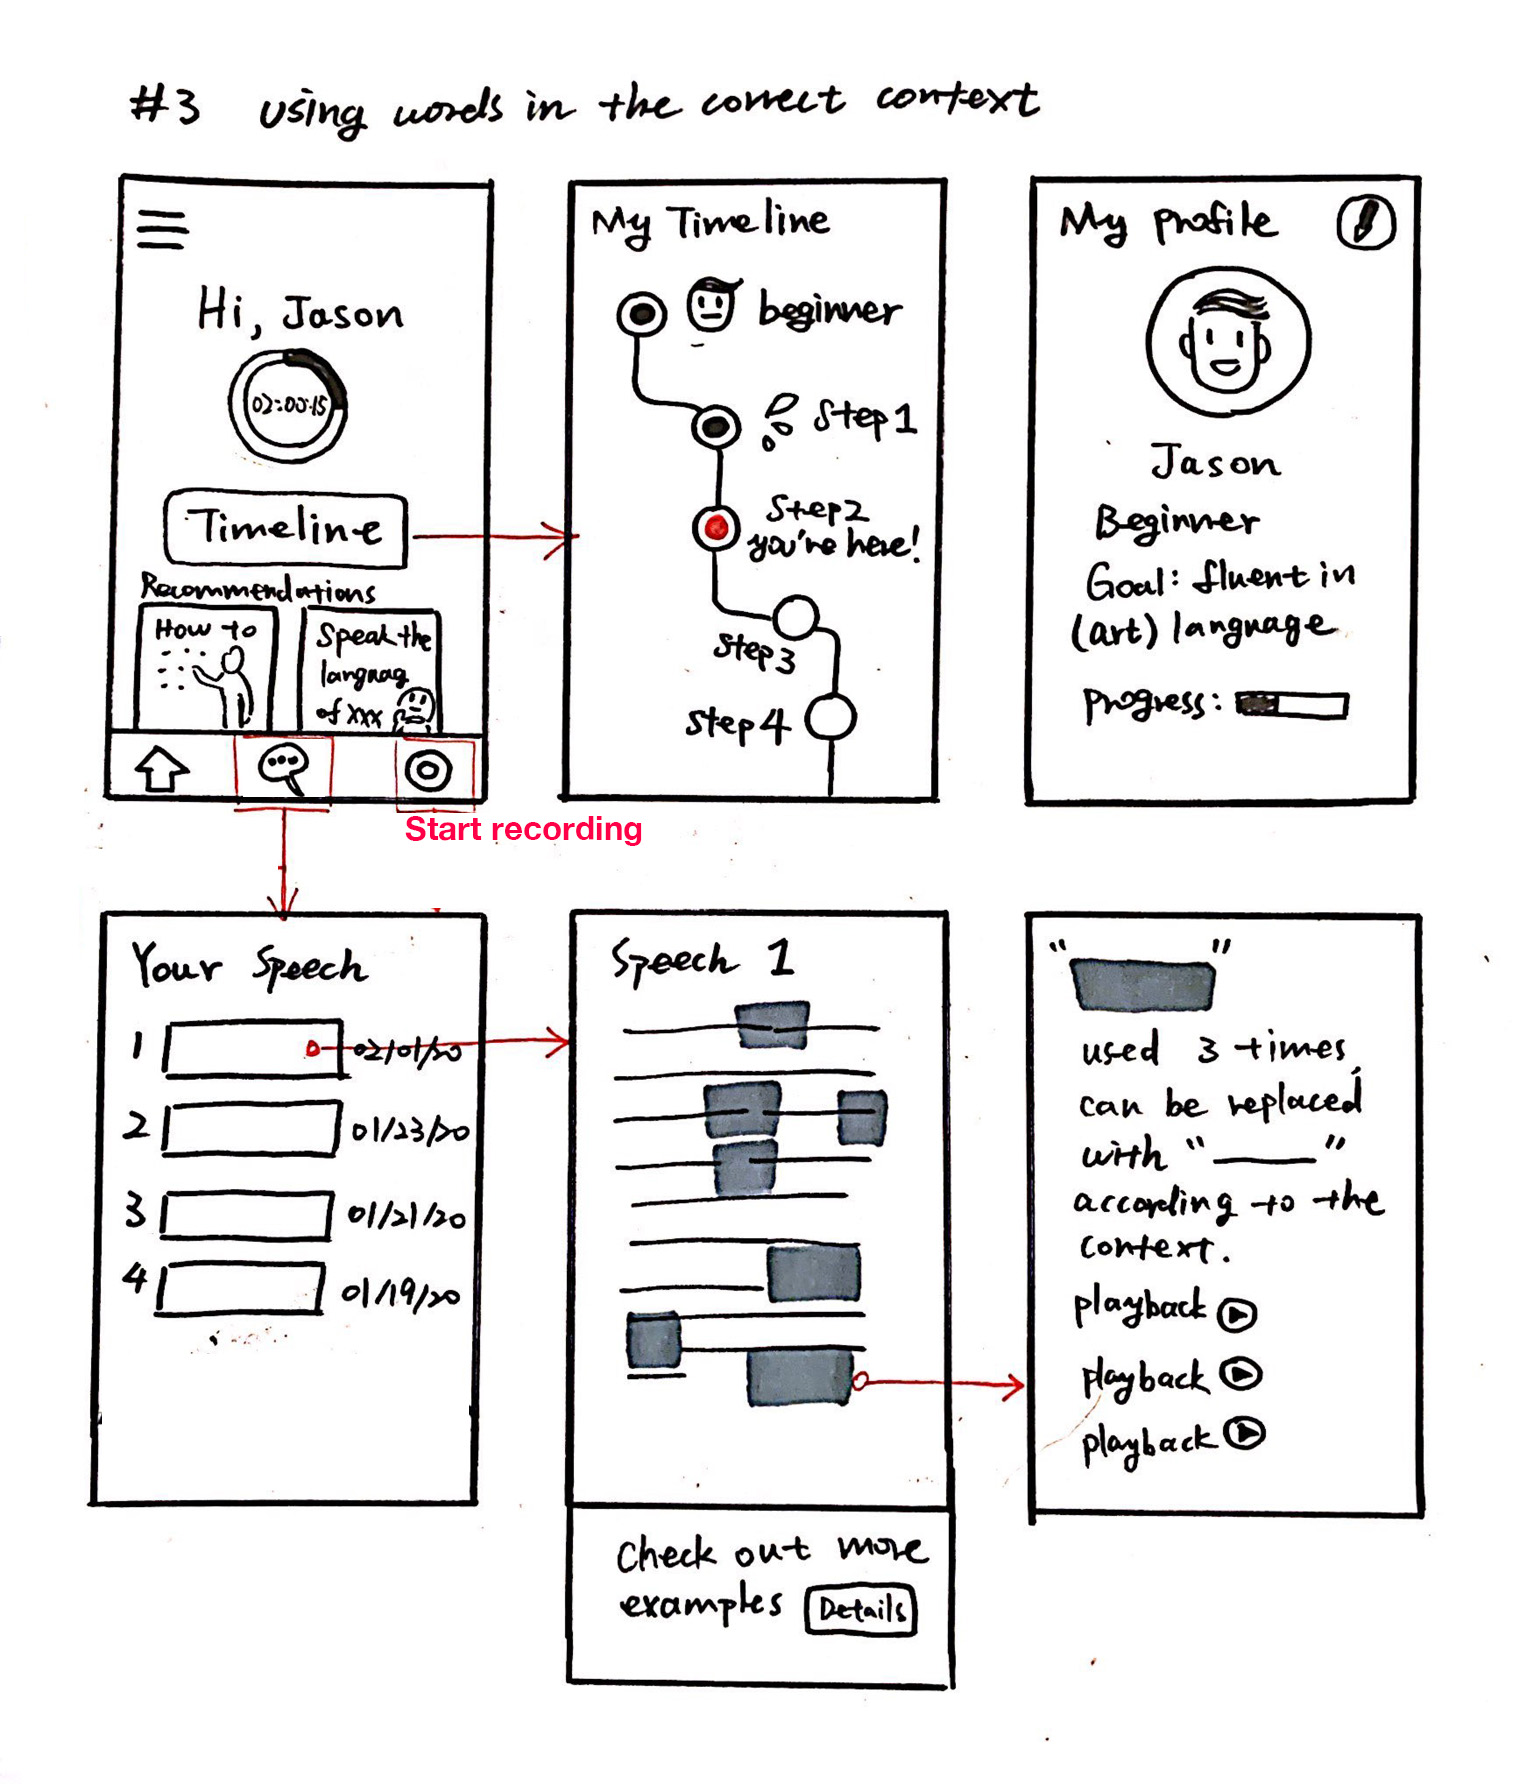 #3 using words in the correct context
Hi, Jason
02:00:15
Timeline
Recommendations
How to
Speak the
languag
of xxx
Start recording
My Timeline
beginner
Step 1
Step 2
you're here!
Step 3
Step 4
My Profile
Jason
Beginner
Goal: fluent in
(art) language
Progress:
Your Speech
1 02/01/20
2 01/23/20
3 01/21/20
4 01/19/20
Speech 1
Check out more
examples Details
" "
used 3 times,
can be replaced
with "______"
according to the
context.
playback
playback
playback